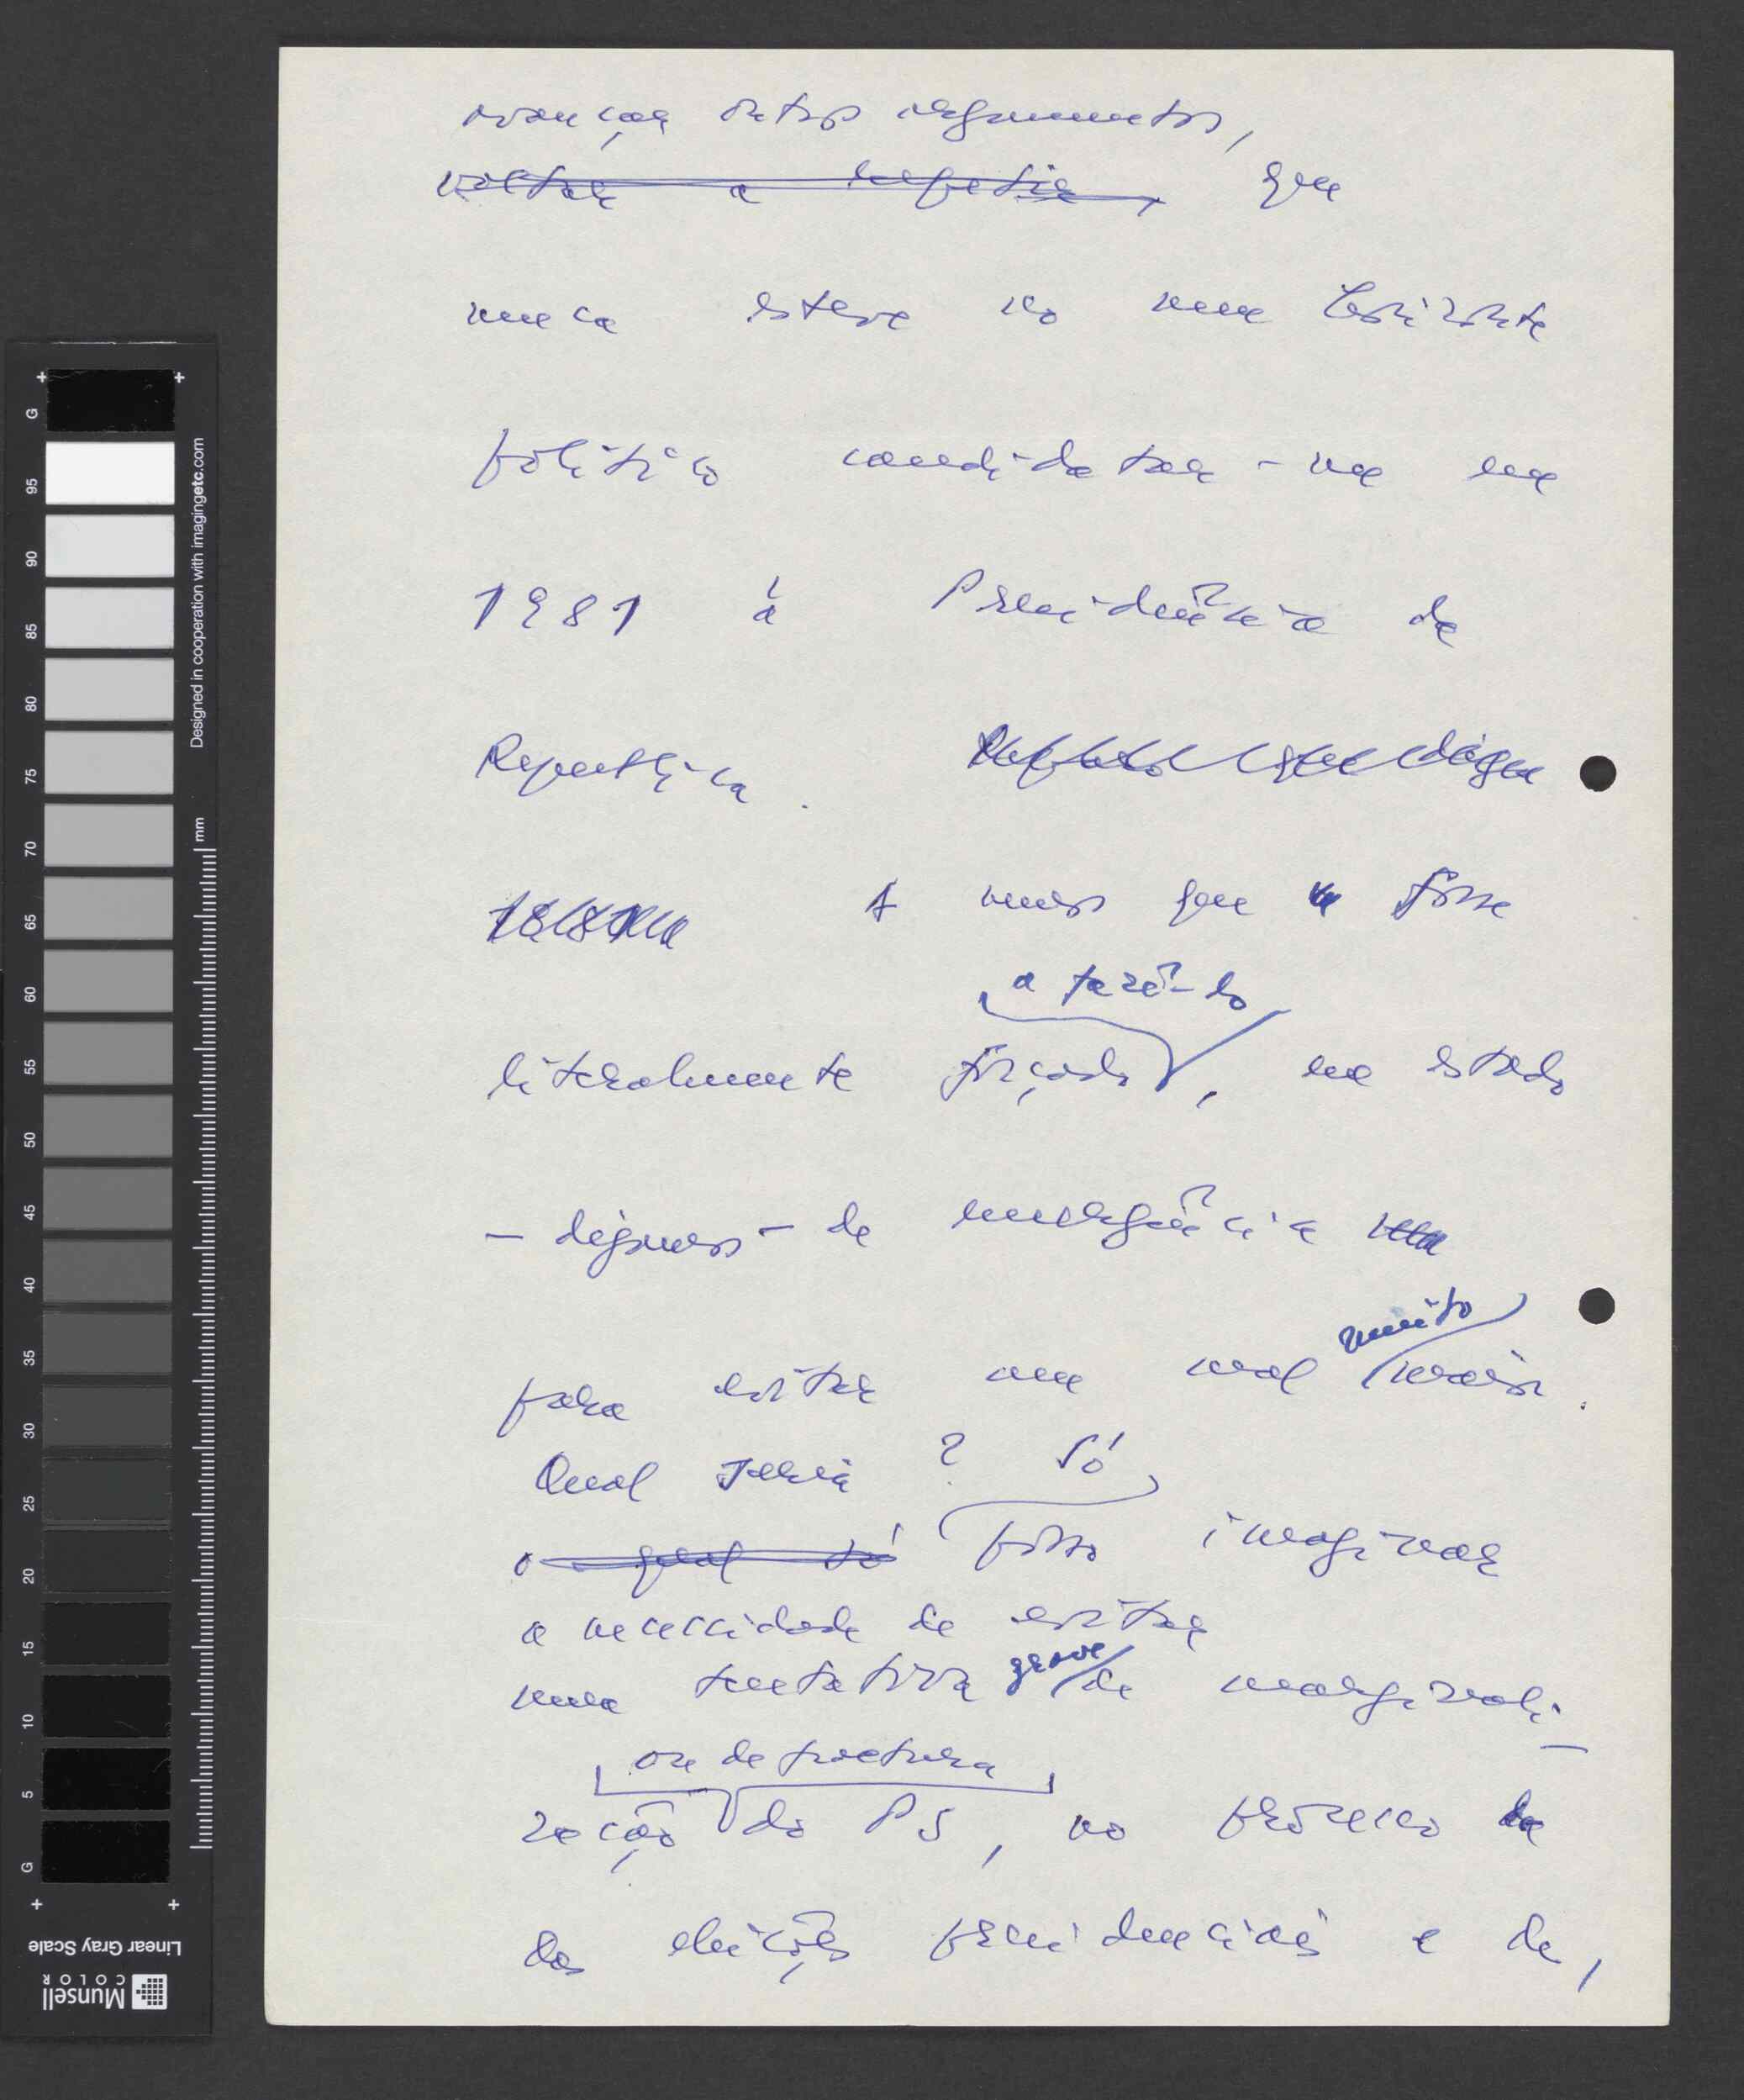 avançar outros argumentos,
voltar a repetir, que
nunca esteve no meu horizonte
político candidatar-me em
1981 à Presidência da
República.
A menos que fosse
a fazê-lo
literalmente forçado, em estado
- digamos - de emergência
muito
para evitar um mal maior.
Qual seria? Só
o qual só posso imaginar
a necessidade de evitar
uma tentativa grave de marginali-
ou de fractura
zação do PS, no processo
das eleições presidenciais e de,
G
95
90
85
80
75
70
65
60
55
50
45
40
35
30
25
20
15
10
5
G
mm
Designed in cooperation with imagingetc.com
Linear Gray Scale
Munsell
COLOR